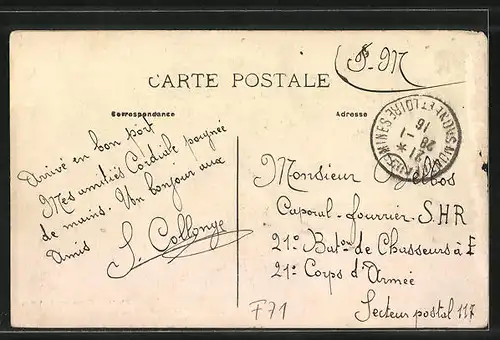 F-M
CARTE POSTALE
Correspondance
Adresse
MONTCEAU-LES-MINES
SAONE ET LOIRE
21 *
28 -1
16
Arrivé en bon port
Mes amitiés Cordiale poignée
de mains. Un bonjour aux
Amis
J. Collonge
Monsieur
Caporal-fourrier. S.H.R
21e Baton de Chasseurs à P
21e Corps d'Armée
Secteur postal 117
F71